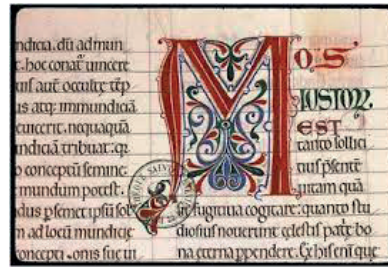 ndicia. dū ad mun
t. hoc conat᷑ uincere
uis aut occulte tēp
us atq; immundiciā
euicerit. nequaquā
ndiciā tribuat:
o conceptū semine:
mundum potest.
dus psemet ipsū sol
m ad locū mundicie
MOS
IUSTOꝜ
EST
tanto sollici
tius psente
uitam quā
fugitiua cogitare: quanto stu
diosius nouerunt celestis bo
na eterna ppendere. Ex his eni que